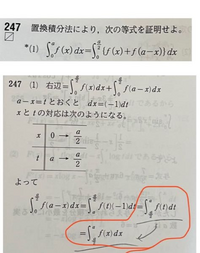 247 置換積分法により，次の等式を証明せよ。
*(1) ∫₀ᵃ f(x)dx=∫₀^{a/2} {f(x)+f(a−x)}dx
247 (1) 右辺=∫₀^{a/2} f(x)dx+∫₀^{a/2} f(a−x)dx
a−x=t とおくと dx=(−1)dt
x と t の対応は次のようになる。
x 0 → a/2
t a → a/2
よって
∫₀^{a/2} f(a−x)dx=∫ₐ^{a/2} f(t)(−1)dt=∫_{a/2}^{a} f(t)dt
=∫_{a/2}^{a} f(x)dx